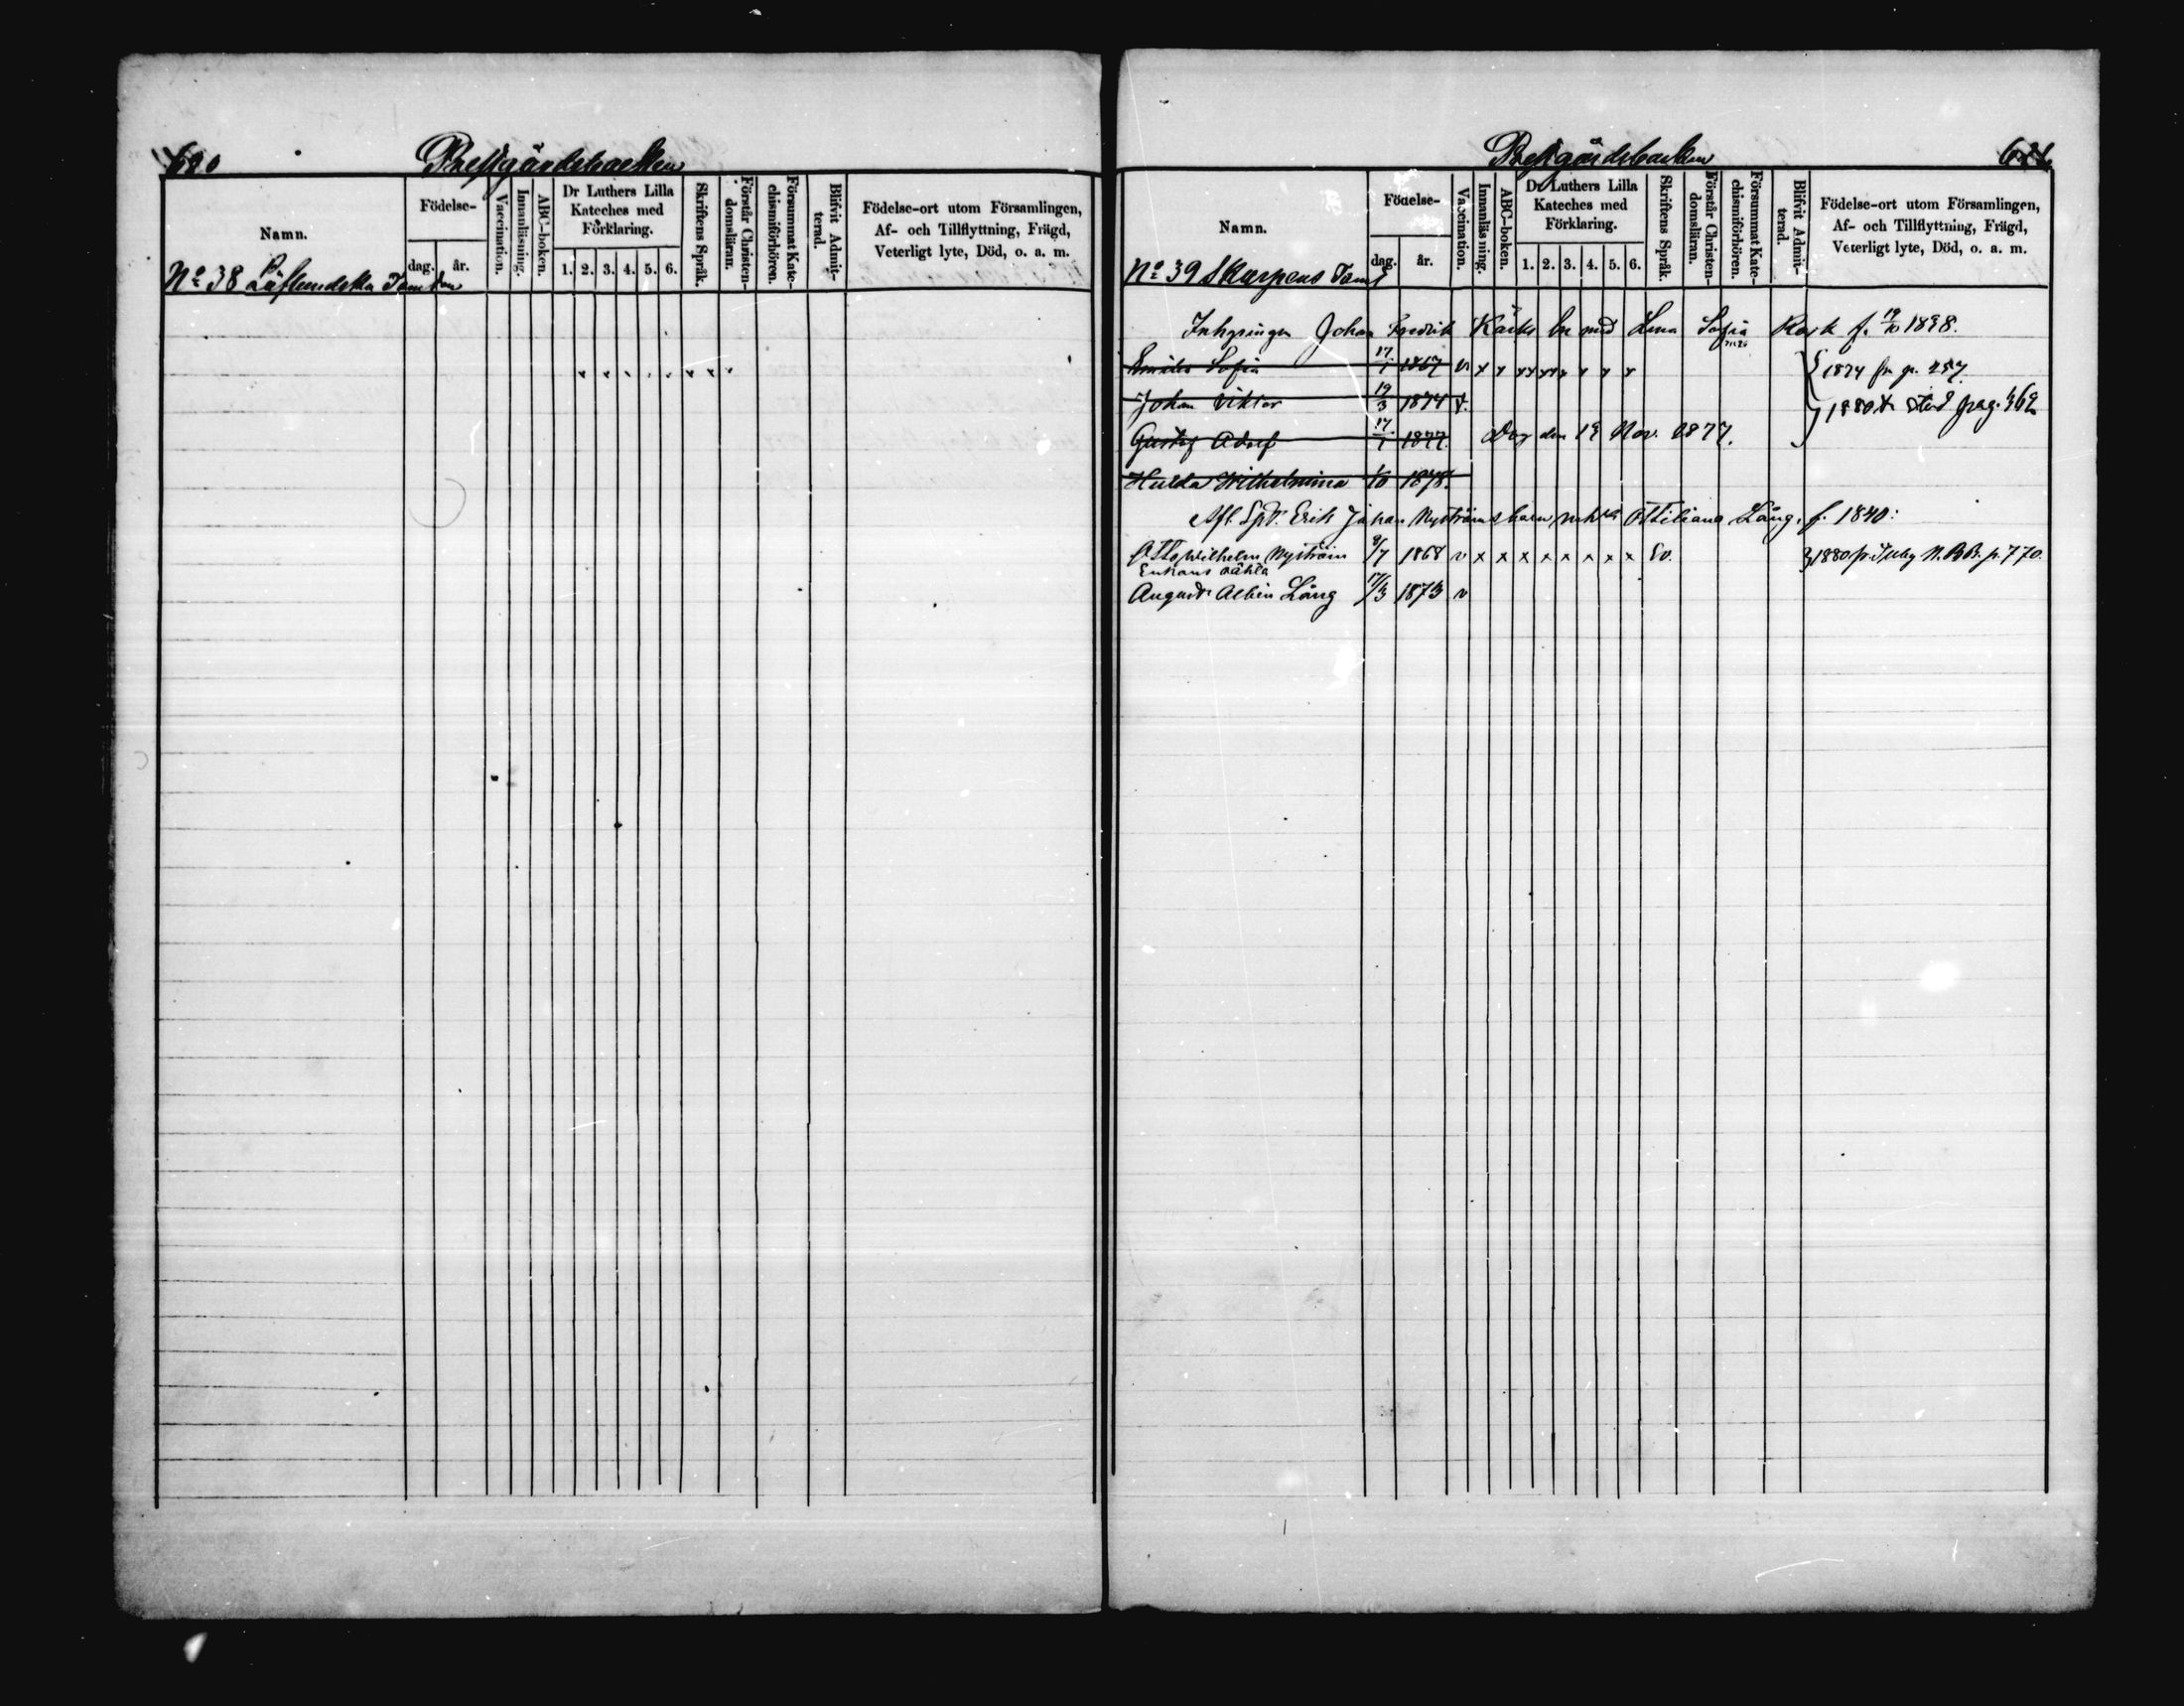 620 Prestgårdsbacken
Namn.
Födelse-
dag. år.
Vaccination.
Innanläsning.
ABC-boken.
Dr Luthers Lilla Kateches med Förklaring.
1. 2. 3. 4. 5. 6.
Skriftens Språk.
Förstår Christen-domsläran.
Försummat Kate-chismiförhören.
Blifvit Admit-terad.
Födelse-ort utom Församlingen,
Af- och Tillflyttning, Frägd,
Veterligt lyte, Död, o. a. m.
No 38
Prestgårdsbacken 621
Namn.
Födelse-
dag. år.
Vaccination.
Innanläsning.
ABC-boken.
Dr Luthers Lilla Kateches med Förklaring.
1. 2. 3. 4. 5. 6.
Skriftens Språk.
Förstår Christen-domsläran.
Försummat Kate-chismiförhören.
Blifvit Admit-terad.
Födelse-ort utom Församlingen,
Af- och Tillflyttning, Frägd,
Veterligt lyte, Död, o. a. m.
No 39 Skarpens Tomt
Inhysingen Johan Fredrik med Lena Sofia f. 19/10
Sofia 17/1 1867 v x x x x x x x x 1874 fr. p. 257.
Johan Viktor 19/3 1874 v. 1880 pag.
Gustaf Adolf 17/1 1877. Dog den 19 Nov. 1877.
Hulda Wilhelmina 1/10 1878.
Afl. Erik Johan Nyströms barn Ottiliana Lång, f. 1840:
Otto Wilhelm Nyström 9/7 1868 v x x x x x x x x 1880 p. 770.
Enkans oäkta
August Albin Lång 17/3 1873 v